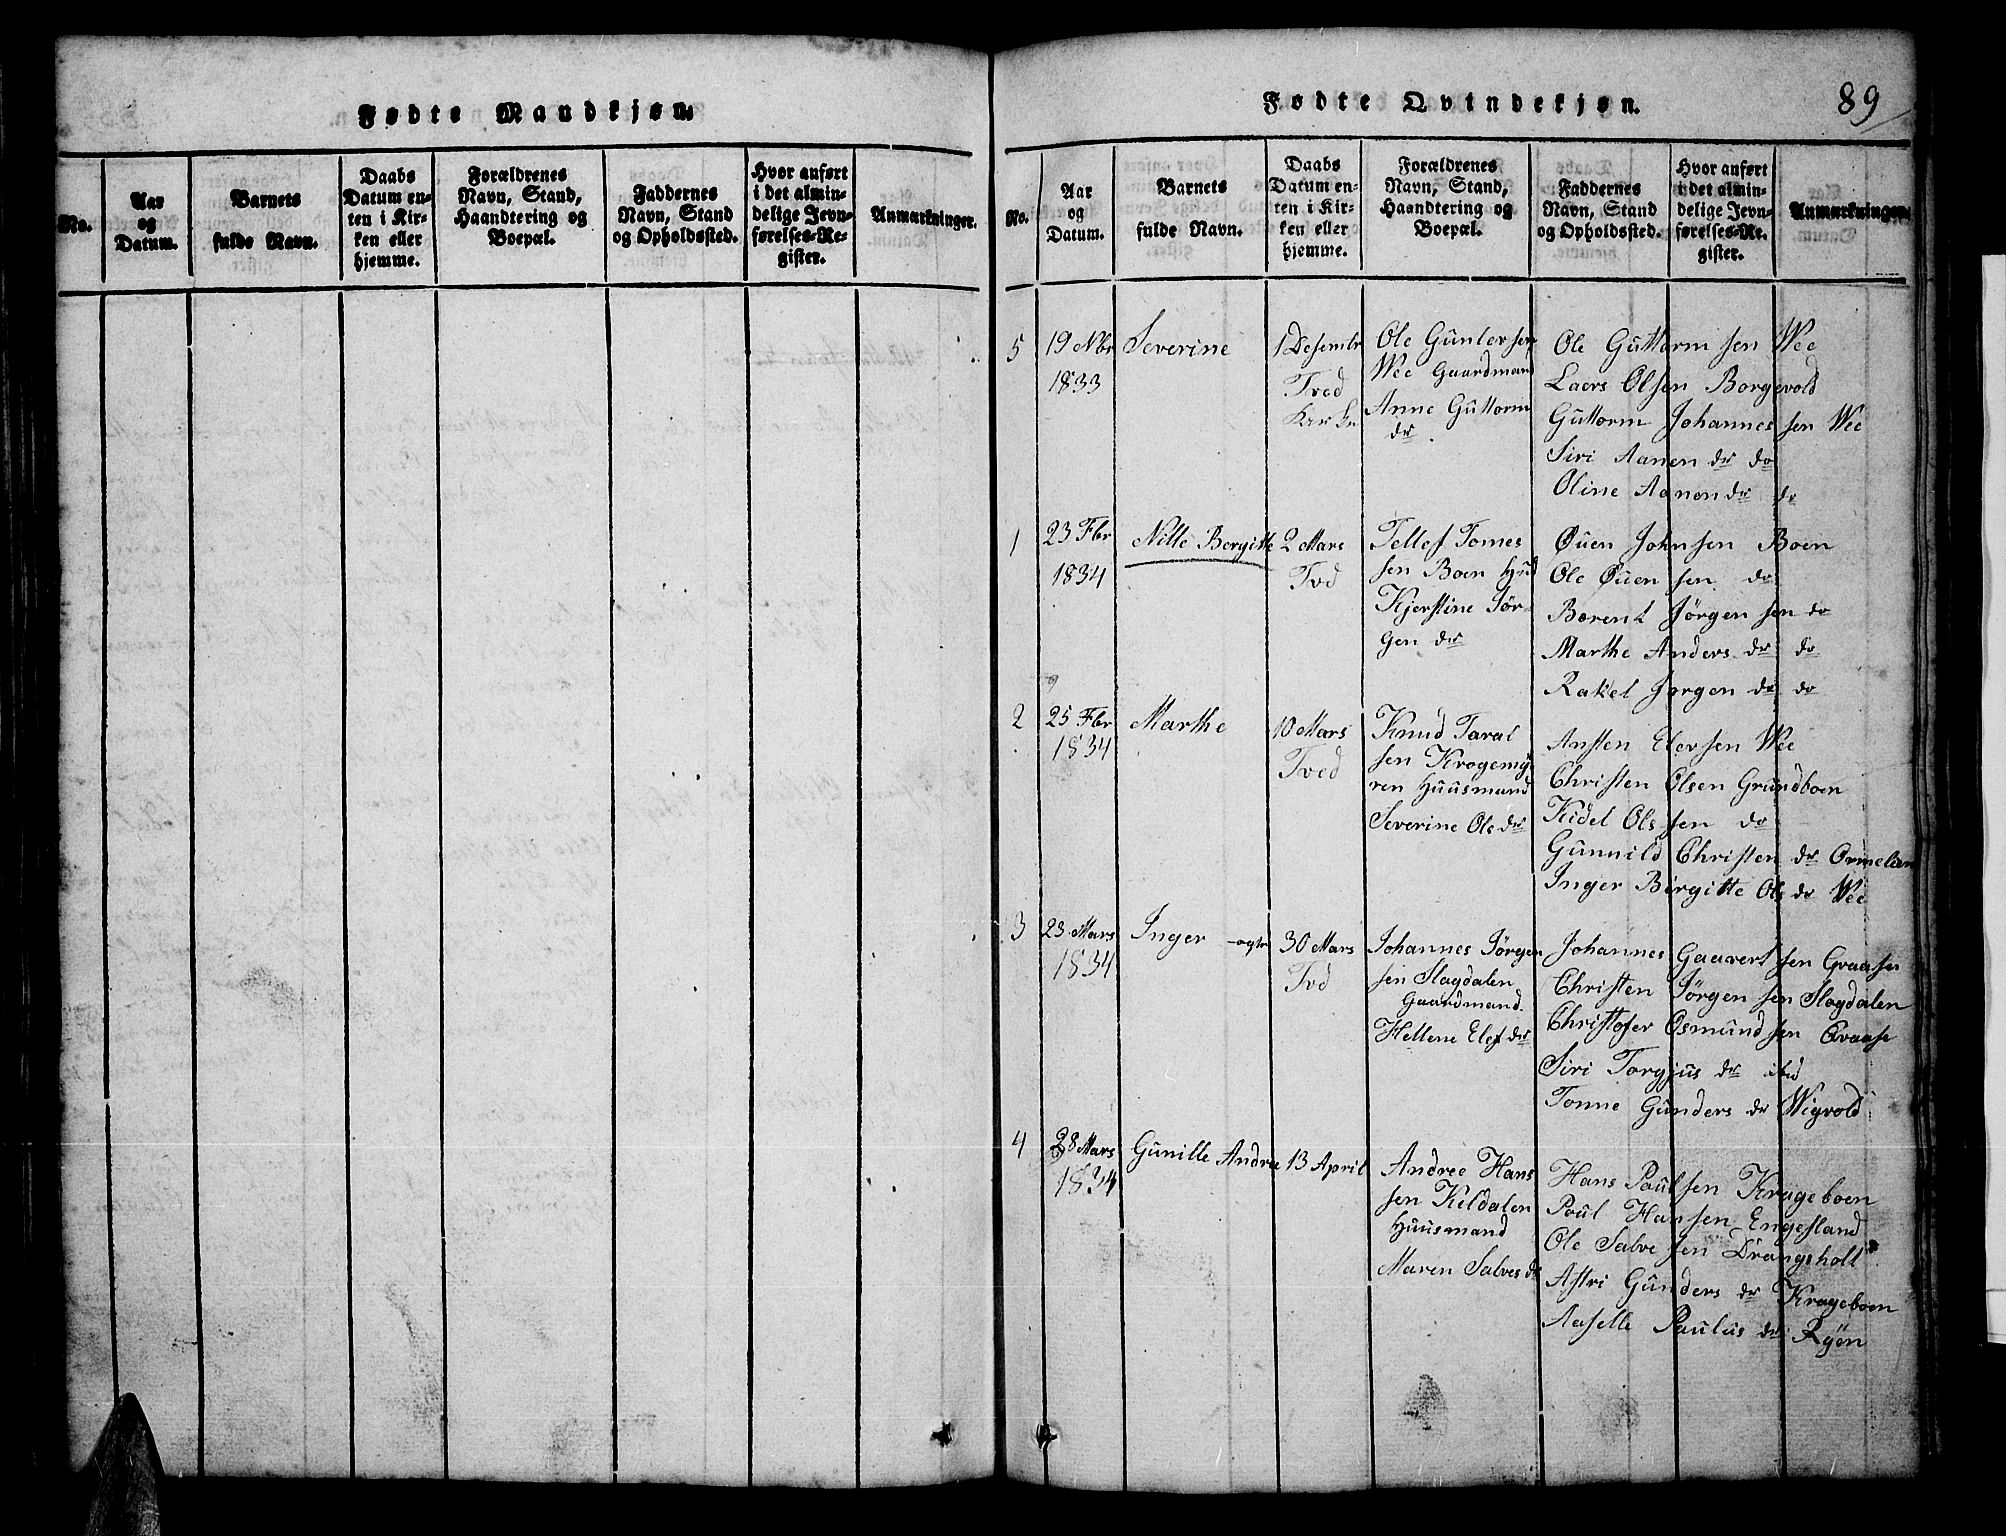 Fødte Mandkjøn.
No.
Aar
og
Datum.
Barnets
fulde Navn.
Daabs
Datum en-
ten i Kir-
ken eller
hjemme.
Forældrenes
Navn, Stand,
Haandtering og
Boepæl.
Faddernes
Navn, Stand
og Opholdssted.
Hvor anført
i det almin-
delige Jevn-
førelses-Re-
gister.
Anmærkninger.
Fødte Qvindekjøn.
89
No.
Aar
og
Datum.
Barnets
fulde Navn.
Daabs
Datum en-
ten i Kir-
ken eller
hjemme.
Forældrenes
Navn, Stand,
Haandtering og
Boepæl.
Faddernes
Navn, Stand
og Opholdssted.
Hvor anført
i det almin-
delige Jevn-
førelses-Re-
gister.
Anmærkninger.
5
19 Nbr
1833
Severine
1 Desembr
Tved
Kirke
Ole Guntersen
Wee Gaardmand
Anne Guttorm
dr.
Ole Guttorm sen Wee
Laers Olsen Borgevold
Guttorm Johannes sen Wee
Siri Aanen dr do
Oline Aanen dr do
1
23 Fbr
1834
Nille Bergitte
2 Mars
Tvd
Tellef Tomes
sen Boen Hud
Kjerstine Jør-
gen dr
Øuen Johnsen Boen
Ole Øuen sen do
Berent Jørgen sen do
Marthe Anders dr do
Rakel Jørgen dr do
2
25 Fbr
1834
Marthe
10 Mars
Tved
Knud Taral
sen Krogemy
ren Huusmand
Severine Ole dr
Ansten Elersen Wee
Christen Olsen Grundboen
Kidel Ols sen do
Gunnild Christen dr Ormelien
Inger Birgitte Ols dr Wee
3
23 Mars
1834
Inger
ogte
30 Mars
Tvd
Johannes Jørgen
sen Slagdalen
Gaardmand.
Hellene Elef dr
Johannes Gaavert sen Graasen
Christen Jørgen sen Slogdalen
Christofer Osmund sen Qvaase
Siri Torgjus dr ibid
Tonne Gunders dr Wigvold
4
28 Mars
1834
Gunille Andrea
13 April
Andree Hans
sen Kildalen
Huusmand
Maren Salves dr
Hans Paulsen Krageboen
Poul Hansen Engesland
Ole Salve sen Drangsholt
Astri Gunders dr Krageboen
Aaselle Paulus dr Ryen